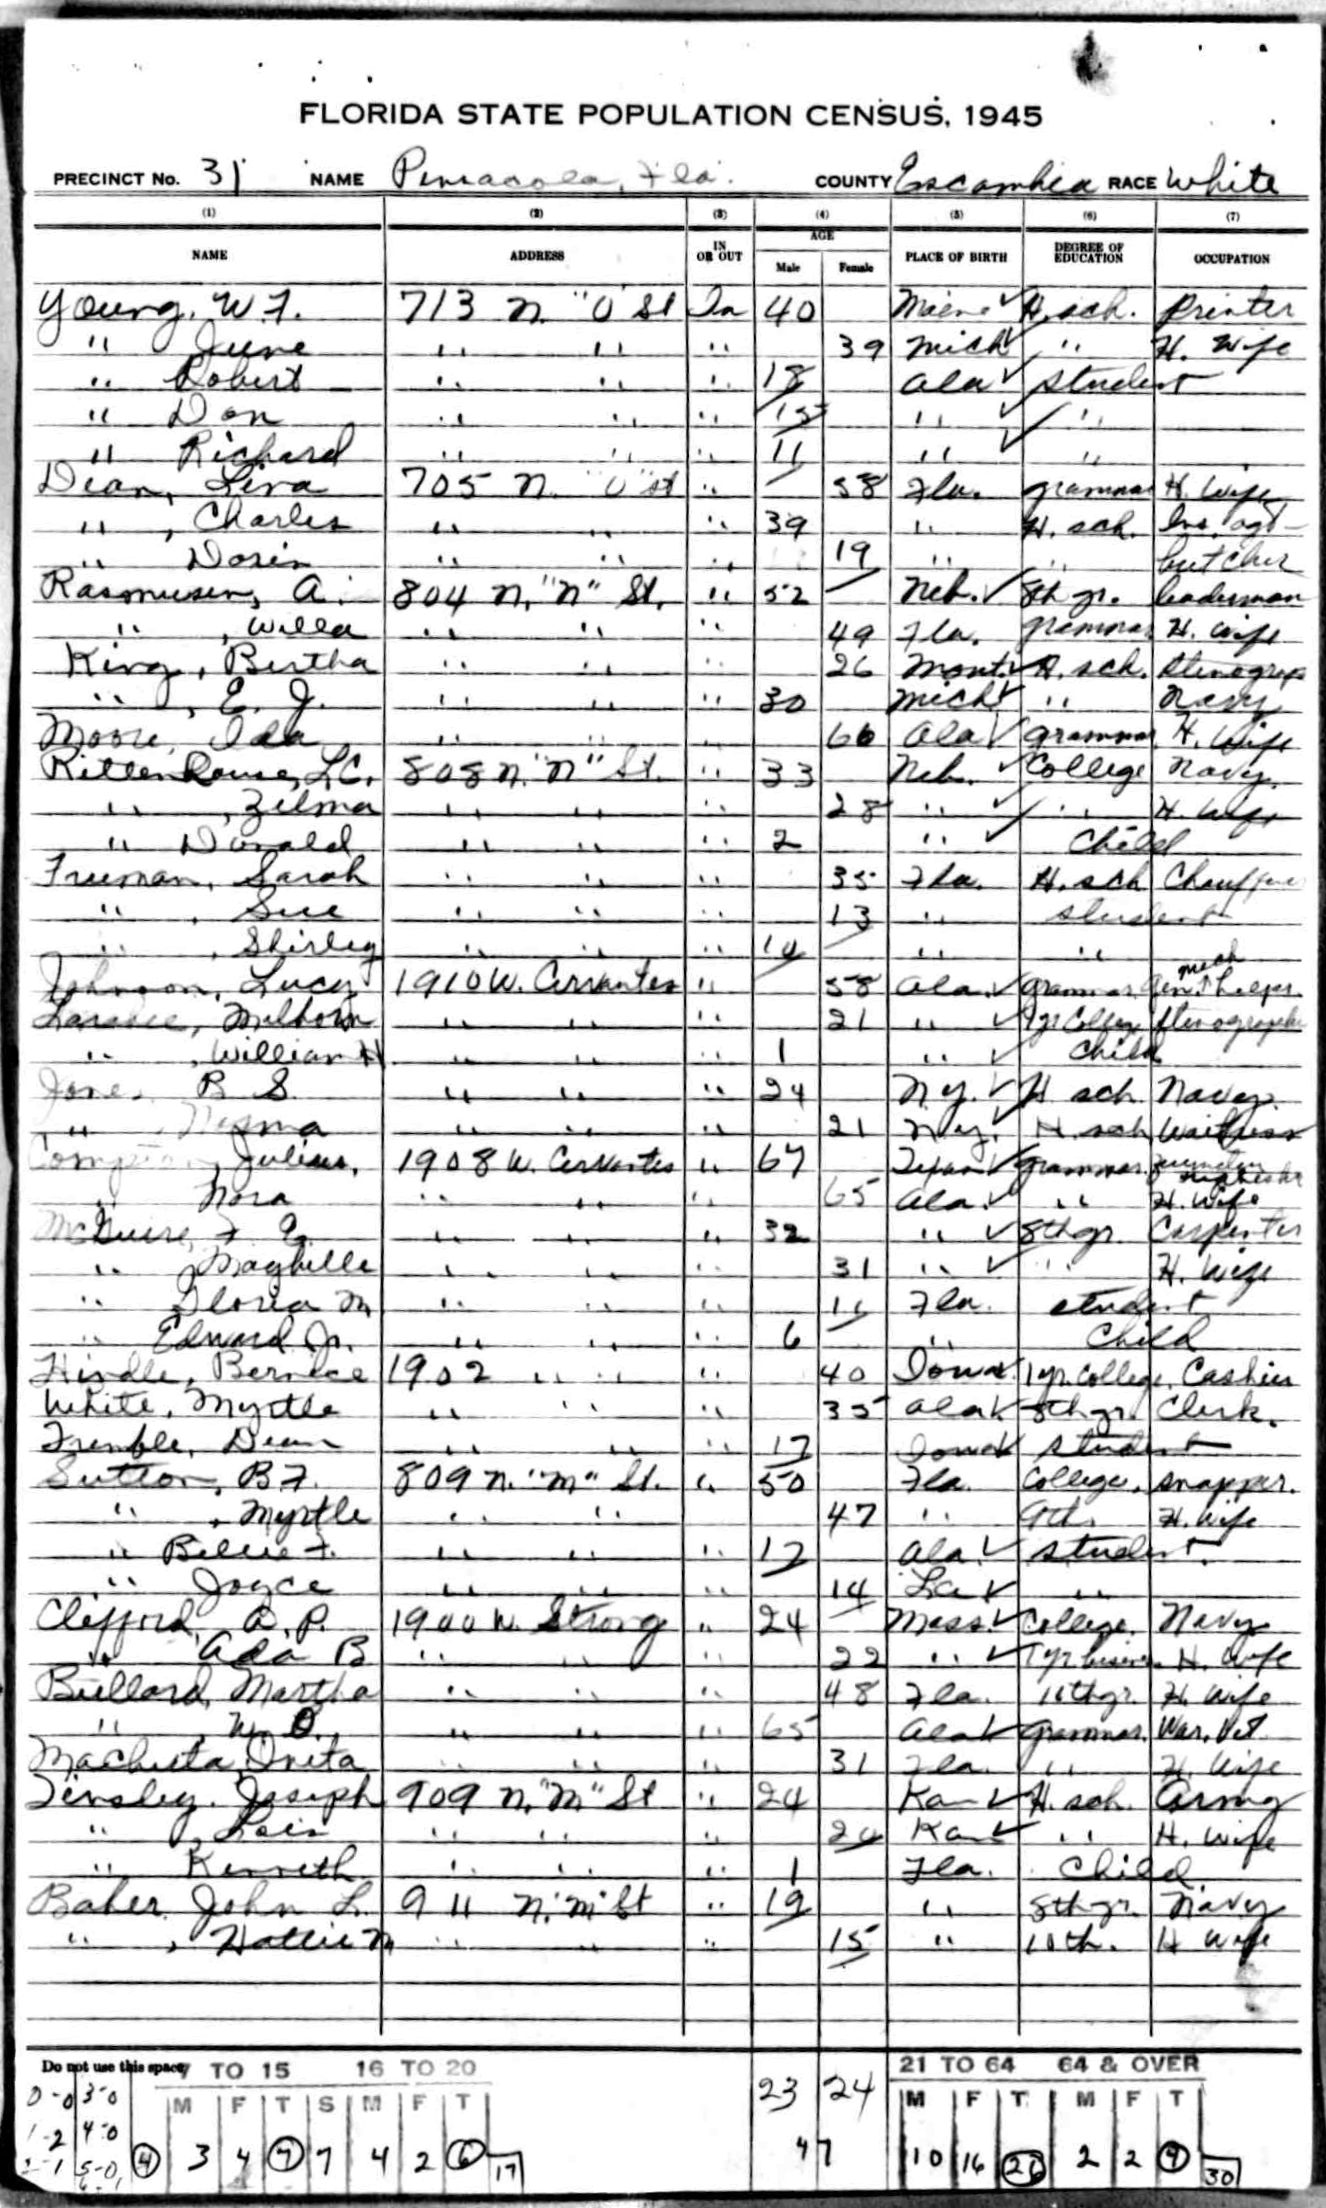 FLORIDA STATE POPULATION CENSUS, 1945
PRECINCT No. 31 NAME Pensacola, Fla. COUNTY Escambia RACE White
(1) (2) (3) (4) (5) (6) (7)
NAME ADDRESS IN OR OUT AGE Male Female PLACE OF BIRTH DEGREE OF EDUCATION OCCUPATION
Young, W.F. 713 N. "O" St In 40 Maine ✓ H. sch. Printer
" June " " " 39 Mich ✓ " H. Wife
" Robert " " " 18 Ala ✓ student
" Don " " " 15 " ✓ "
" Richard " " " 11 " ✓ "
Dean, Lena 705 N. "O" St " 58 Fla. grammar H. Wife
" , Charles " " " 39 " H. sch. Ins. agt-
" Doris " " " 19 " " butcher
Rasmusen, A. 804 N. "N" St. " 52 Neb. ✓ 8th gr. leaderman
" , Willa " " " 49 Fla. grammar H. Wife
King, Bertha " " " 26 Mont. ✓ H. sch. Stenogrop
" , E. J. " " " 30 Mich ✓ " Navy
Moore, Ida " " " 66 Ala ✓ grammar H. Wife
Rittenhouse, L.C. 808 N. "N" St. " 33 Neb. ✓ College Navy.
" , Zelma " " " 28 " ✓ " H. Wife
" Donald " " " 2 " ✓ Child
Freeman, Sarah " " " 35 Fla. H. sch Chauffeur
" , Sue " " " 13 " student
" , Shirley " " " 10 " "
Johnson, Lucy 1910 W. Cervantes " 58 Ala. ✓ grammar. Gen. mech helper.
Milborn " " " 21 " ✓ 1 yr College Stenographer
" , William H " " " 1 " ✓ Child
Jones B S. " " " 24 N.Y. ✓ H sch Navy.
" Norma " " " 21 N.Y. H. sch Waitress
Julius, 1908 W. Cervantes " 67 Texas ✓ grammar.
" Nora " " " 65 Ala. ✓ " H. Wife
McGuire, F. E. " " " 32 " ✓ 8th gr. Carpenter
" , Maybelle " " " 31 " ✓ " H. Wife
" Gloria M " " " 11 Fla. student
" Edward Jr. " " " 6 " Child
Hindle, Bernice 1902 " " " 40 Iowa ✓ 1 yr. College. Cashier
White, Myrtle " " " 35 Ala ✓ 8th gr. Clerk.
Tremble, Dean " " " 17 Iowa ✓ student
Sutton, B.F. 809 N. "M" St. " 50 Fla. College. snapper.
" , Myrtle " " " 47 " 9th. H. Wife
" Billie F. " " " 17 Ala. ✓ student.
" Joyce " " " 14 La ✓ "
Clifford, A. P. 1900 W. Strong " 24 Mass. ✓ College. Navy
" Ada B " " " 22 " ✓ 1 yr business. H. Wife
Bullard, Martha " " " 48 Fla. 11th gr. H. Wife
" , W. O. " " " 65 Ala ✓ grammar. War. Vet
Inita " " " 31 Fla. " H. Wife
Tinsley, Joseph 909 N. "M" St " 24 Kan ✓ H. sch. Army
" , Lois " " " 20 Kan ✓ " H. Wife
" Kenneth " " " 1 Fla. Child
Baker, John L. 911 N. "M" St " 19 " 8th gr. Navy
" , Hattie M " " " 15 " 10th. H Wife
Do not use this space 7 TO 15 16 TO 20 23 24 21 TO 64 64 & OVER
0-0 3-0 M F T S M F T M F T M F T
1-2 4-0
2-1 5-0 4 3 4 7 7 4 2 6 17 47 10 16 26 2 2 4 30
6-1